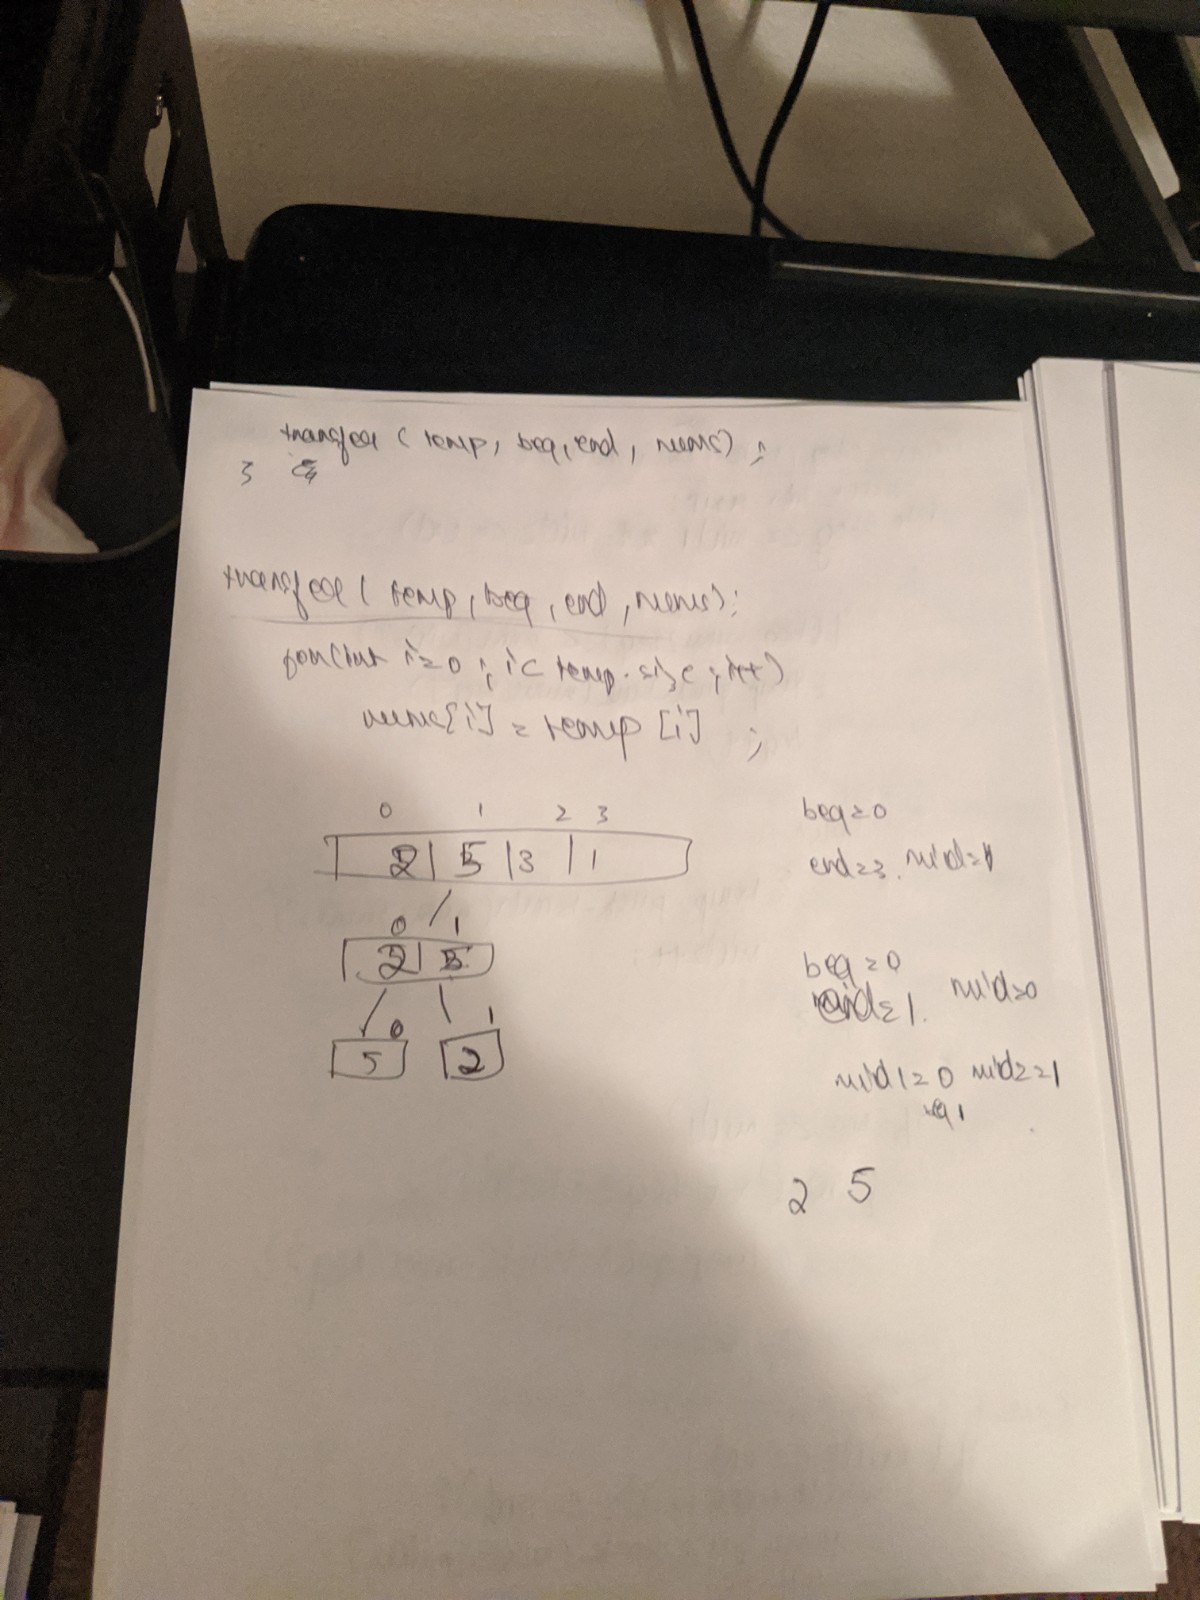 transfer ( temp, beg, end, nums) ;
}
transfer ( temp, beg, end, nums);
for(int i=0 ; i< temp.size ; i++)
nums[i] = temp [i] ;
0 1 2 3
2 5 3 1
beg=0
end=3. mid=1
0 1
2 5
beg=0
end=1. mid=0
0 1
5 2
mid1=0 mid2=1
2 5